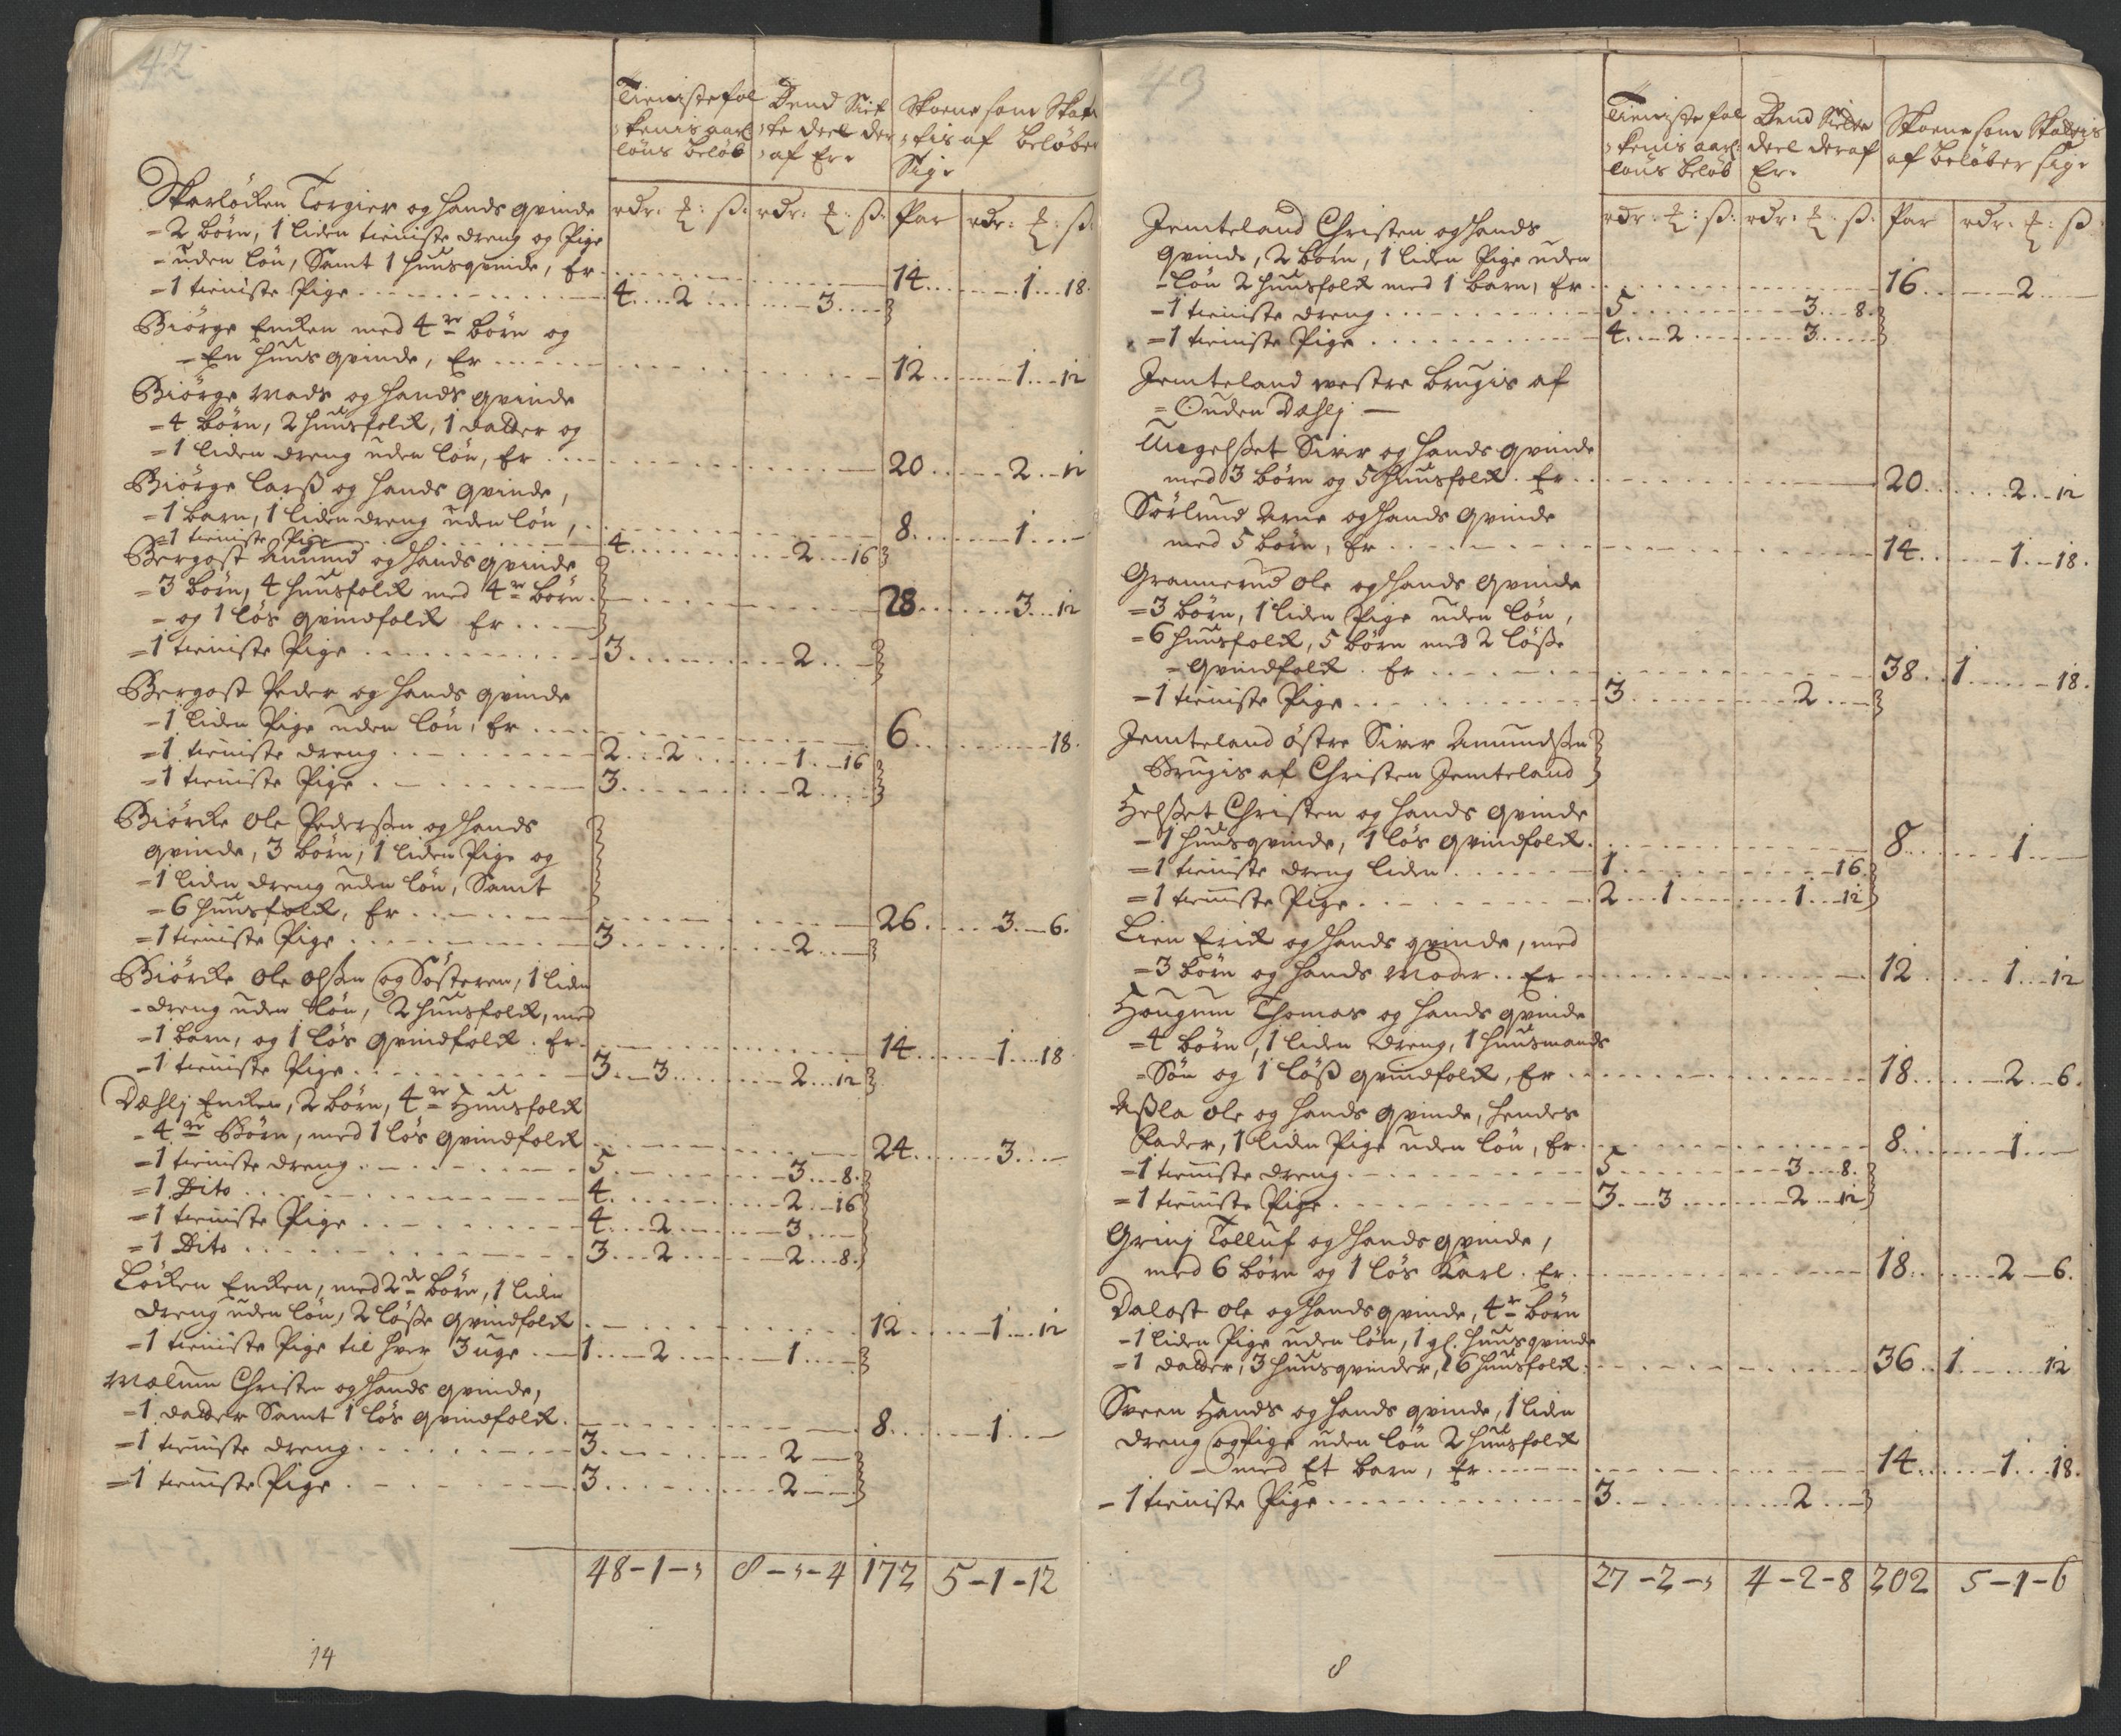 42
Tienistefol Dend Siet Skoene som Skat
-kenis aarl: -te deel der -tis af beløber
löns beløb -af Er. Sig.
rdr: ℥: ß: rdr: ℥: ß: Par rdr: ℥: ß:
Skarlöcken Torgier og hands qvinde
- 2 börn, 1 liden tieniste dreng og Pige
- uden lön, Samt 1 huusqvinde, Er 14 1 18
= 1 tieniste Pige 4 2 3
Biörge Encken med 4re börn og
- En huus qvinde, Er 12 1 12
Biörge Mads og hands qvinde
- 4 börn, 2 huusfolck, 1 datter og
= 1 liden dreng uden lön, Er 20 2 12
Biörge Larß og hands qvinde,
= 1 barn, 1 liden dreng uden lön, 8 1
= 1 tieniste Pige 4 2 16
Bergost Amund og hands qvinde
= 3 börn, 4 huusfolck med 4re börn 28 3 12
- og 1 lös qvindfolck Er
= 1 tieniste Pige 3 2
Bergost Peder og hands qvinde
- 1 liden Pige uden lön, Er 6 18
= 1 tieniste dreng 2 2 1 16
= 1 tieniste Pige 3 2
Biörcke Ole Pederßen og hands
qvinde, 3 börn, 1 liden Pige og
- 1 liden dreng uden lön, Samt
= 6 huusfolck, Er 26 3 6
= 1 tieniste Pige 3 2
Biörcke Ole Olßen og Sösteren, 1 liden
- dreng uden lön, 2 huusfolck, med
- 1 barn, og 1 lös qvindfolck. Er 14 1 18
- 1 tieniste Pige 3 3 2 12
Dæhlj Encken, 2 börn, 4re Huusfolck
- 4re Börn, med 1 lös qvindfolck 24 3
= 1 tieniste dreng 5 3 8
= 1 Dito 4 2 16
= 1 tieniste Pige 4 2 3
= 1 Dito 3 2 2 8
Löcken Encken, med 2de börn, 1 liden
dreng uden lön, 2 löße qvindfolck 12 1 12
- 1 tieniste Pige til hver 3 uge 1 2 1
Mælum Christen og hands qvinde,
= 1 datter Samt 1 lös qvindfolck 8 1
= 1 tieniste dreng 3 2
= 1 tieniste Pige 3 2
48-1-" 8-"-4 172 5-1-12
14
43
Tieniste fol Dend Siette Skoene som Skattis
-kenis aarl: deel deraf af beløber sig.
löns beløb Er.
rdr: ℥: ß: rdr: ℥: ß: Par rdr: ℥: ß
Jemteland Christen og hands
qvinde, 2 börn, 1 liden Pige uden
- lön 2 huusfolck med 1 barn, Er 16 2
- 1 tieniste dreng 5 3 8
= 1 tieniste Pige 4 2 3
Jemteland westre brugis af
= Ouden Dæhlj
Uegelßet Siver og hands qvinde
med 3 börn og 5 huusfolck. Er 20 2 12
Sörlund Arne og hands qvinde
med 5 börn, Er 14 1 18
Grannerud Ole og hands qvinde
= 3 börn, 1 liden Pige uden lön,
= 6 huusfolck, 5 börn med 2 löße
- qvindfolck. Er 38 1 18
- 1 tieniste Pige 3 2
Jemteland östre Siver Amundßen
Brugis af Christen Jemteland
Helßet Christen og hands qvinde
- 1 huusqvinde, 1 lös qvindfolck 8 1
= 1 tieniste dreng liden 1 16
= 1 tieniste Pige 2 1 1 12
Lien Erick og hands qvinde, med
= 3 börn og hands Moder. Er 12 1 12
Hougum Thomas og hands qvinde
= 4 börn, 1 liden dreng, 1 huusmands
= Sön og 1 löß qvindfolck, Er 18 2 6
Aßla Ole og hands qvinde, hendes
Fader, 1 liden Pige uden lön, Er 8 1
- 1 tieniste dreng 5 3 8
= 1 tieniste Pige 3 3 2 12
Grinj Tolluf og hands qvinde,
med 6 börn og 1 lös Karl. Er 18 2 6
Dalost Ole og hands qvinde, 4re börn
- 1 liden Pige uden lön, 1 gl. huusqvinde
= 1 datter, 3 huusqvinder, 16 huusfolck 36 1 12
Sveen Hands og hands qvinde, 1 liden
dreng og Pige uden lön 2 huusfolck
- med Et barn, Er 14 1 18
- 1 tieniste Pige 3 2
27-2-" 4-2-8 202 5-1-6
8